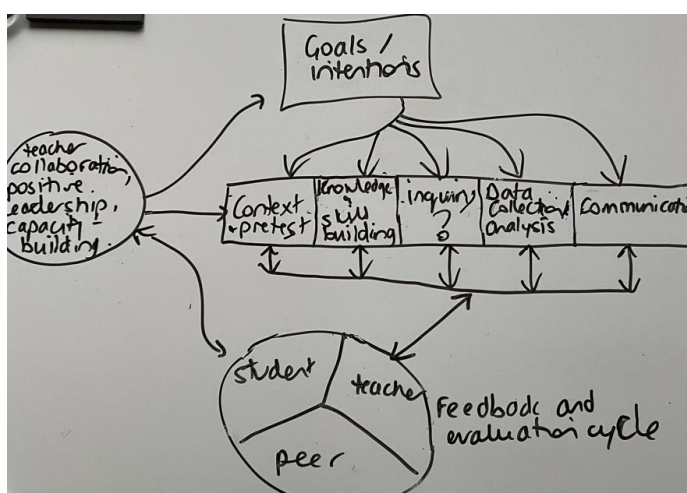 Goals /
intentions
teacher
collaboration,
positive
leadership,
capacity-
building.
Context
+ pretest
Knowledge
+
skill
building
inquiry
?
Data
Collection +
analysis
Communicatio
student
teacher
peer
Feedback and
evaluation cycle